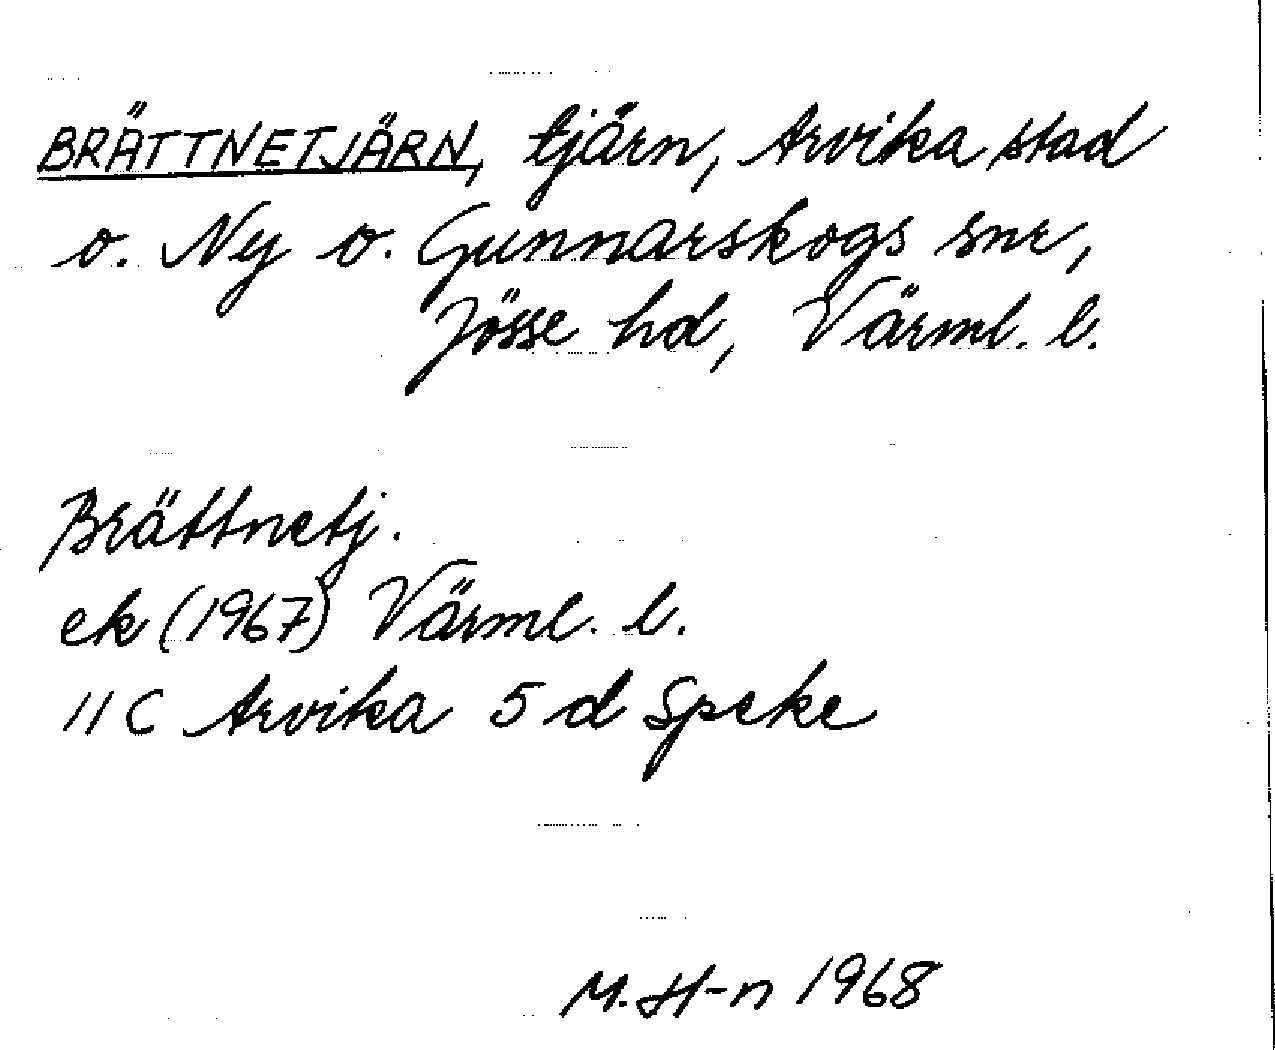 BRÄTTNETJÄRN, tjärn, Arvika stad
o. Ny o. Gunnarskogs snr,
Jösse hd, Värml. l.
Brättnetj.
ek (1967) Värml. l.
11 C Arvika 5 d Speke
M. H-n 1968